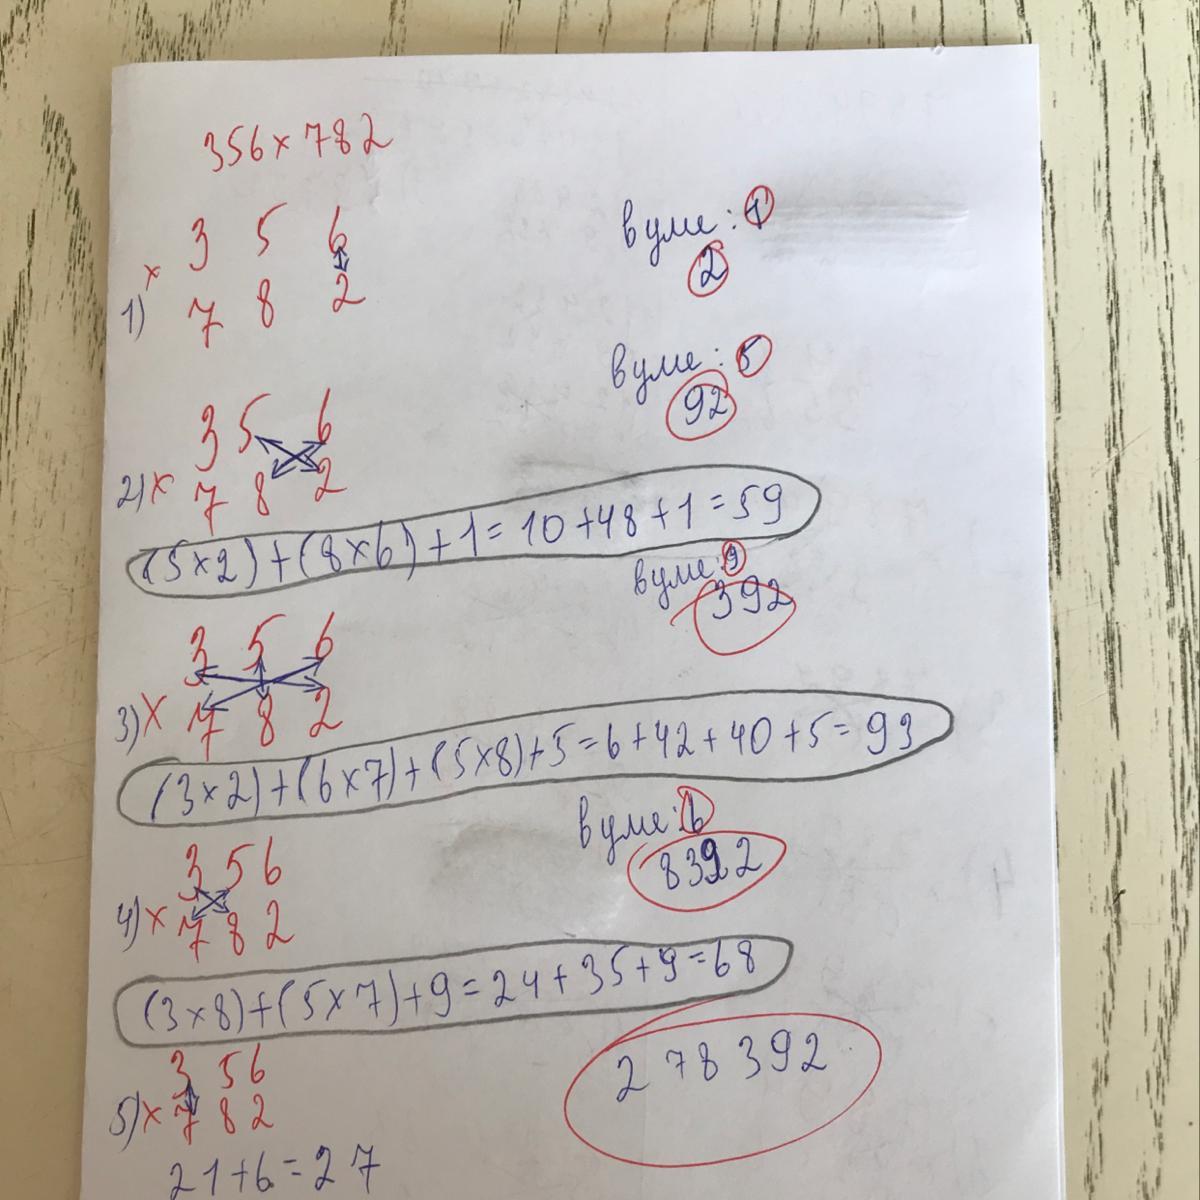 356 x 782
3 5 6
в уме: 1
x
7 8 2
2
1)
в уме: 5
92
3 5 6
2) x 7 8 2
(5 x 2) + (8 x 6) + 1 = 10 + 48 + 1 = 59
в уме: 9
392
3 5 6
3) x 7 8 2
(3 x 2) + (6 x 7) + (5 x 8) + 5 = 6 + 42 + 40 + 5 = 93
в уме: 6
8392
3 5 6
4) x 7 8 2
(3 x 8) + (5 x 7) + 9 = 24 + 35 + 9 = 68
3 5 6
278392
5) x 7 8 2
21 + 6 = 27